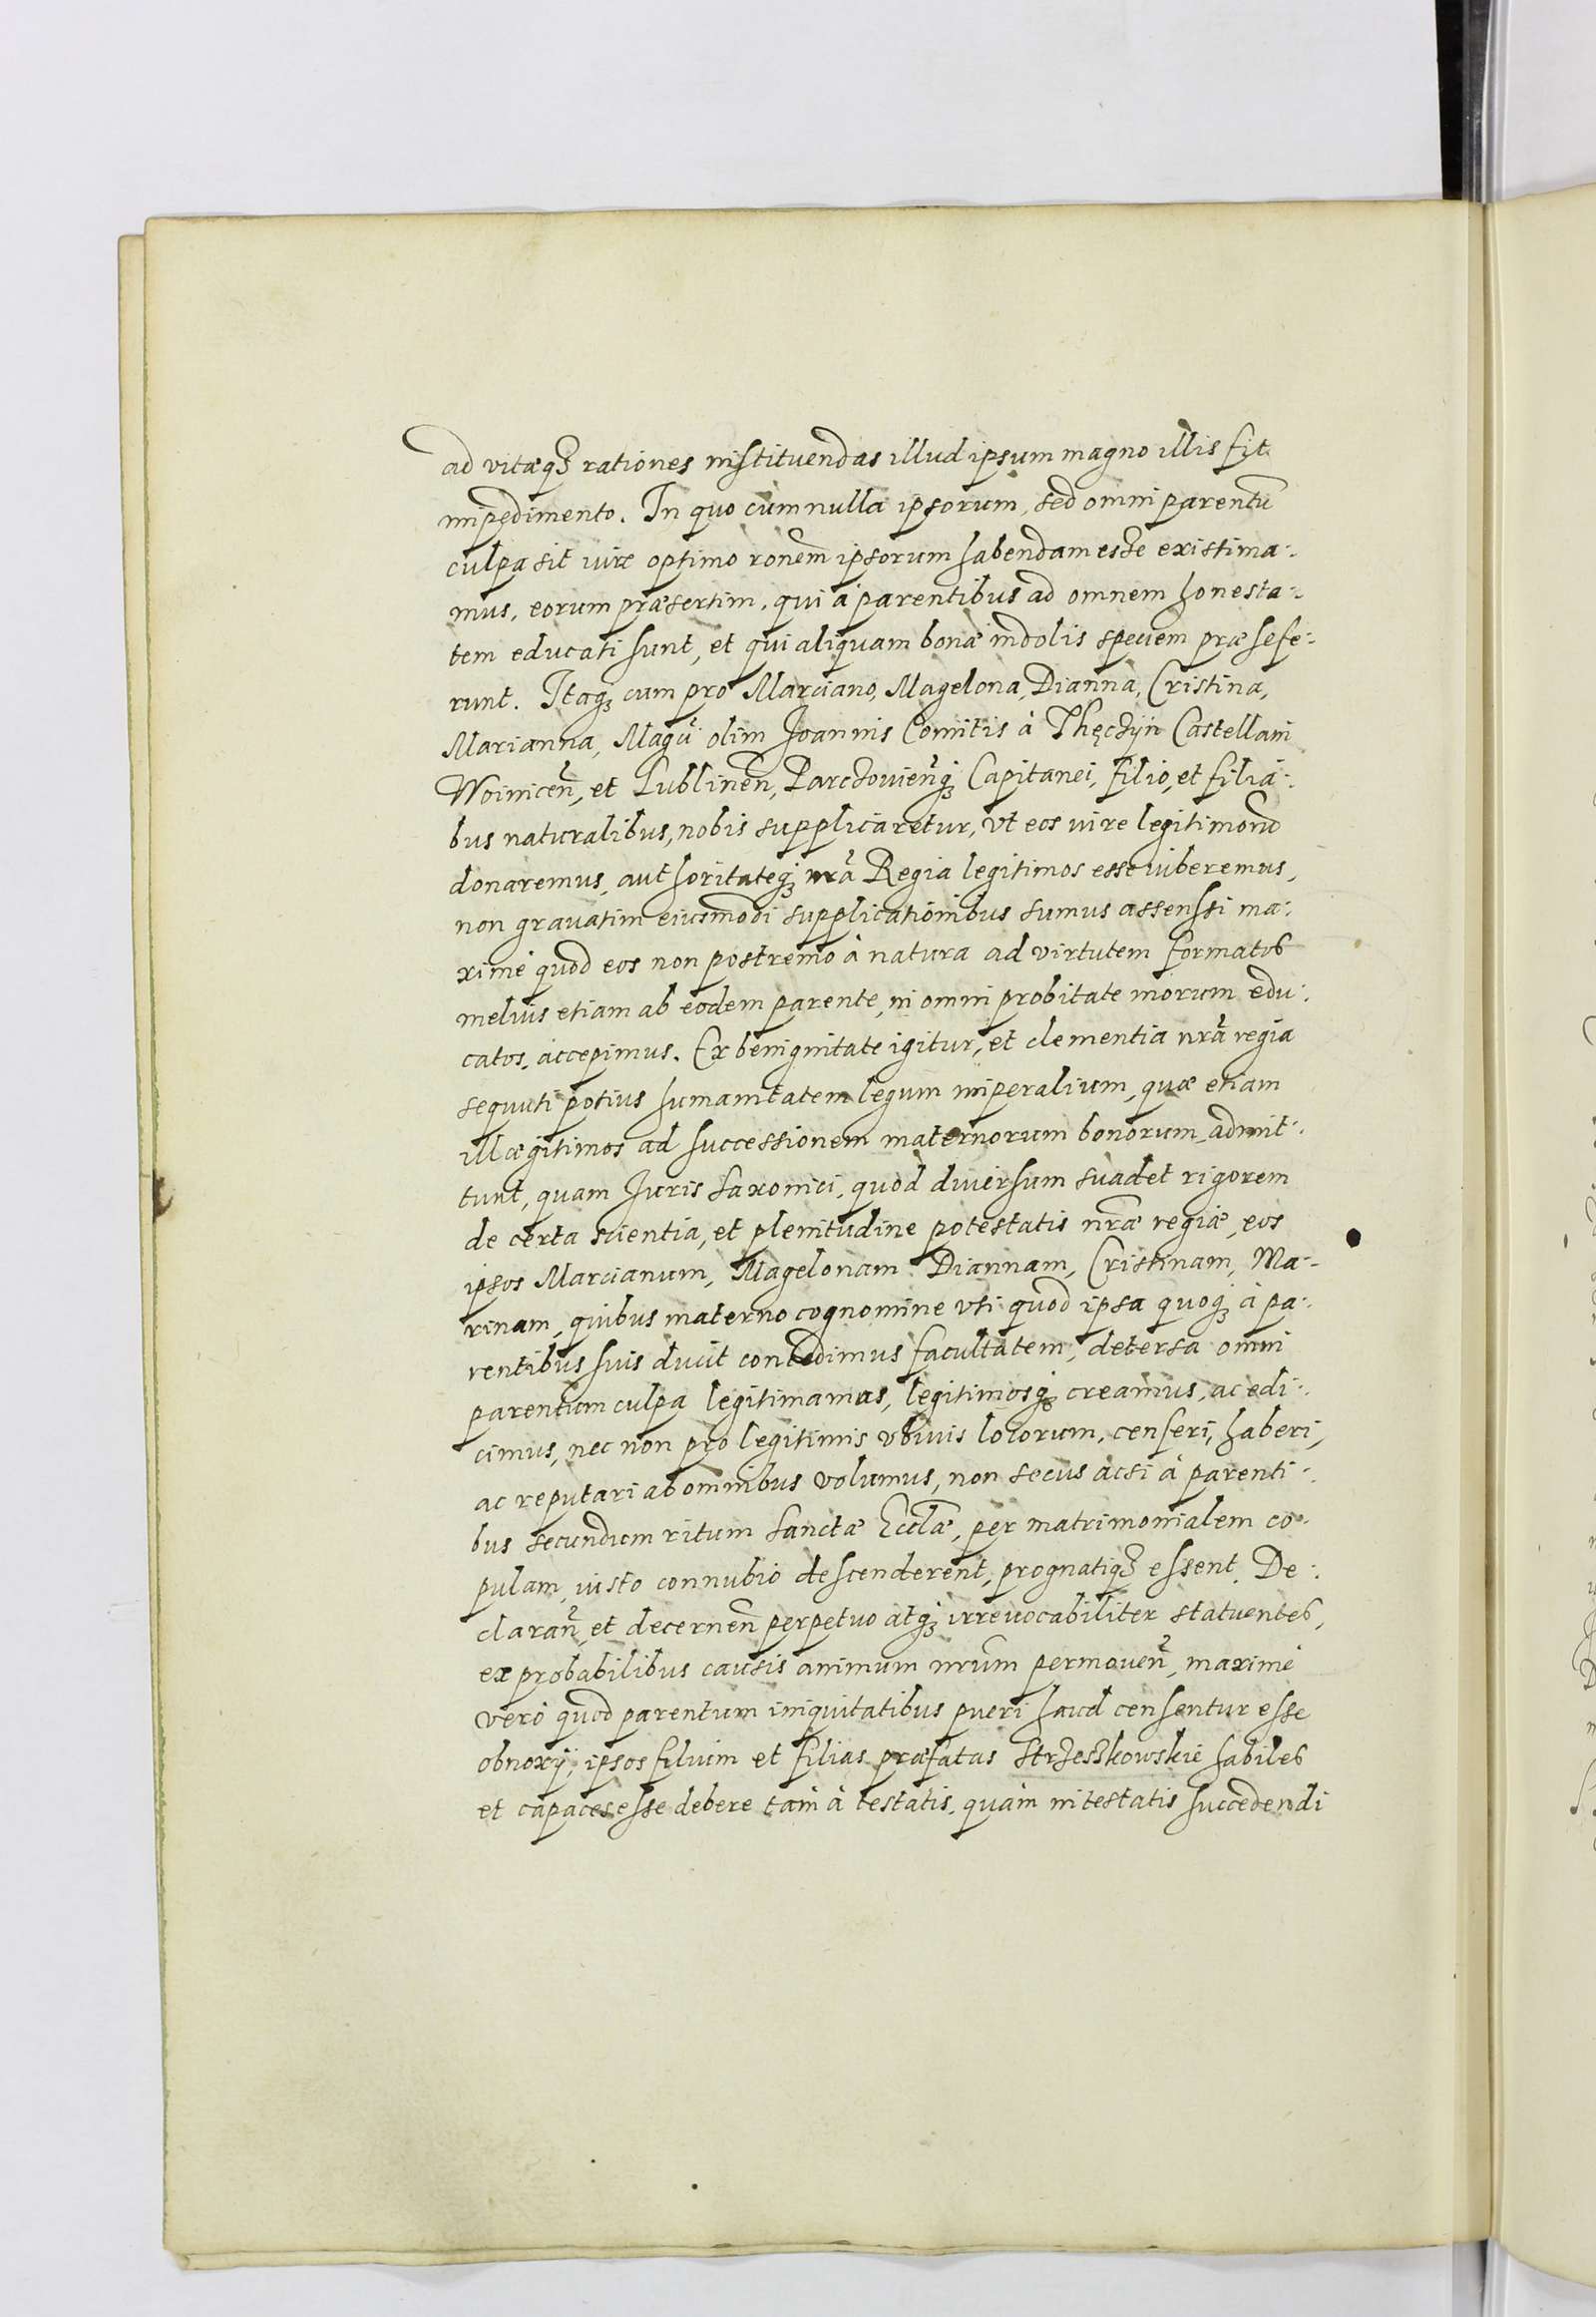 ad vitæq3 rationes instituendas illud ipsum magno illis fit
impedimento. In quo cum nulla ipsorum, sed omni parentū
culpa sit iure optimo ronem̄ ipsorum habendam esse existima:
mus, eorum præsertim, qui à parentibus ad omnem honesta:
tem educati sunt, et qui aliquam bonæ indolis speciem præ se fe:
runt. Itaq3 cum pro Marciano, Magelona, Dianna, Cristina,
Marianna, Magci olim Joannis Comitis à Thęczÿn Castellani
Woinicen̄, et Lublinen̄, Parczouien̄q3 Capitanei, filio, et filiá:
bus naturalibus, nobis supplicaretur, vt eos iure legitimorū
donaremus, authoritateq3 nr̄a Regia legitimos esse iuberemus,
non grauatim eiusmodi supplicationibus sumus assenssi ma:
ximè quod eos non postremo à natura ad virtutem formatos
melius etiam ab eodem parente, in omni probitate morum edu:
catos, accepimus. Ex benignitate igitur, et clementia nr̄a regia
sequuti potius humanitatem legum imperalium, quæ etiam
illægitimos ad successionem maternorum bonorum admit:
tunt, quam Juris Saxonici, quod diuersum suadet rigorem
de certa scientia, et plenitudine potestatis nr̄æ regiæ, eos
ipsos Marcianum, Magelonam Diannam, Cristinam, Ma:
rinam, quibus materno cognomine vti quod ipsa quoq3 à pa:
rentibus suis ducit concedimus facultatem, detersa omni
parentum culpa legitimamus, legitimosq3 creamus, ac edi:
cimus, nec non pro legitimis vbiuis locorum, censeri, haberi,
ac reputari ab omnibus volumus, non secus acsi à parenti:
bus secundum ritum Sanctæ Eccl̄æ, per matrimonialem co:
pulam, iusto connubio descenderent, prognatiq3 essent. De:
claran̄, et decernen̄ perpetuo atq3 irreuocabiliter statuentes,
ex probabilibus causis animum nr̄um permouen̄, maximè
verò quod parentum iniquitatibus pueri haud censentur esse
obnoxÿ, ipsos filium et filias præfatas Strzeszkowskie habiles
et capaces esse debere tam à testatis, quàm intestatis succedendi